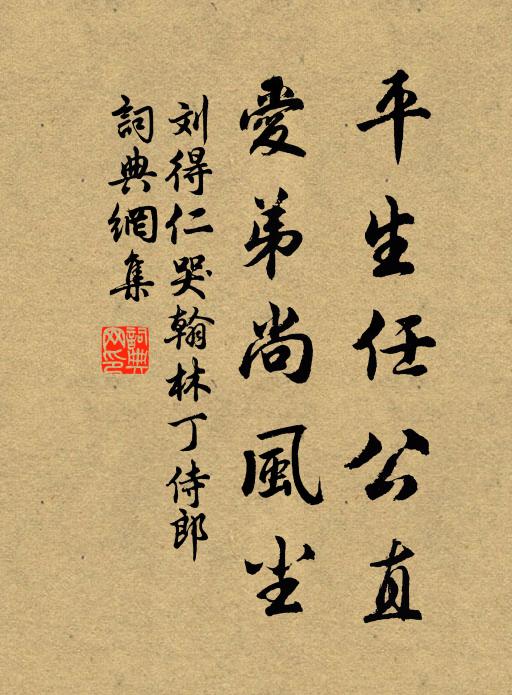 平生任公直
愛弟尚風尘
刘得仁哭翰林丁侍郎
詞典網集
詞典网印